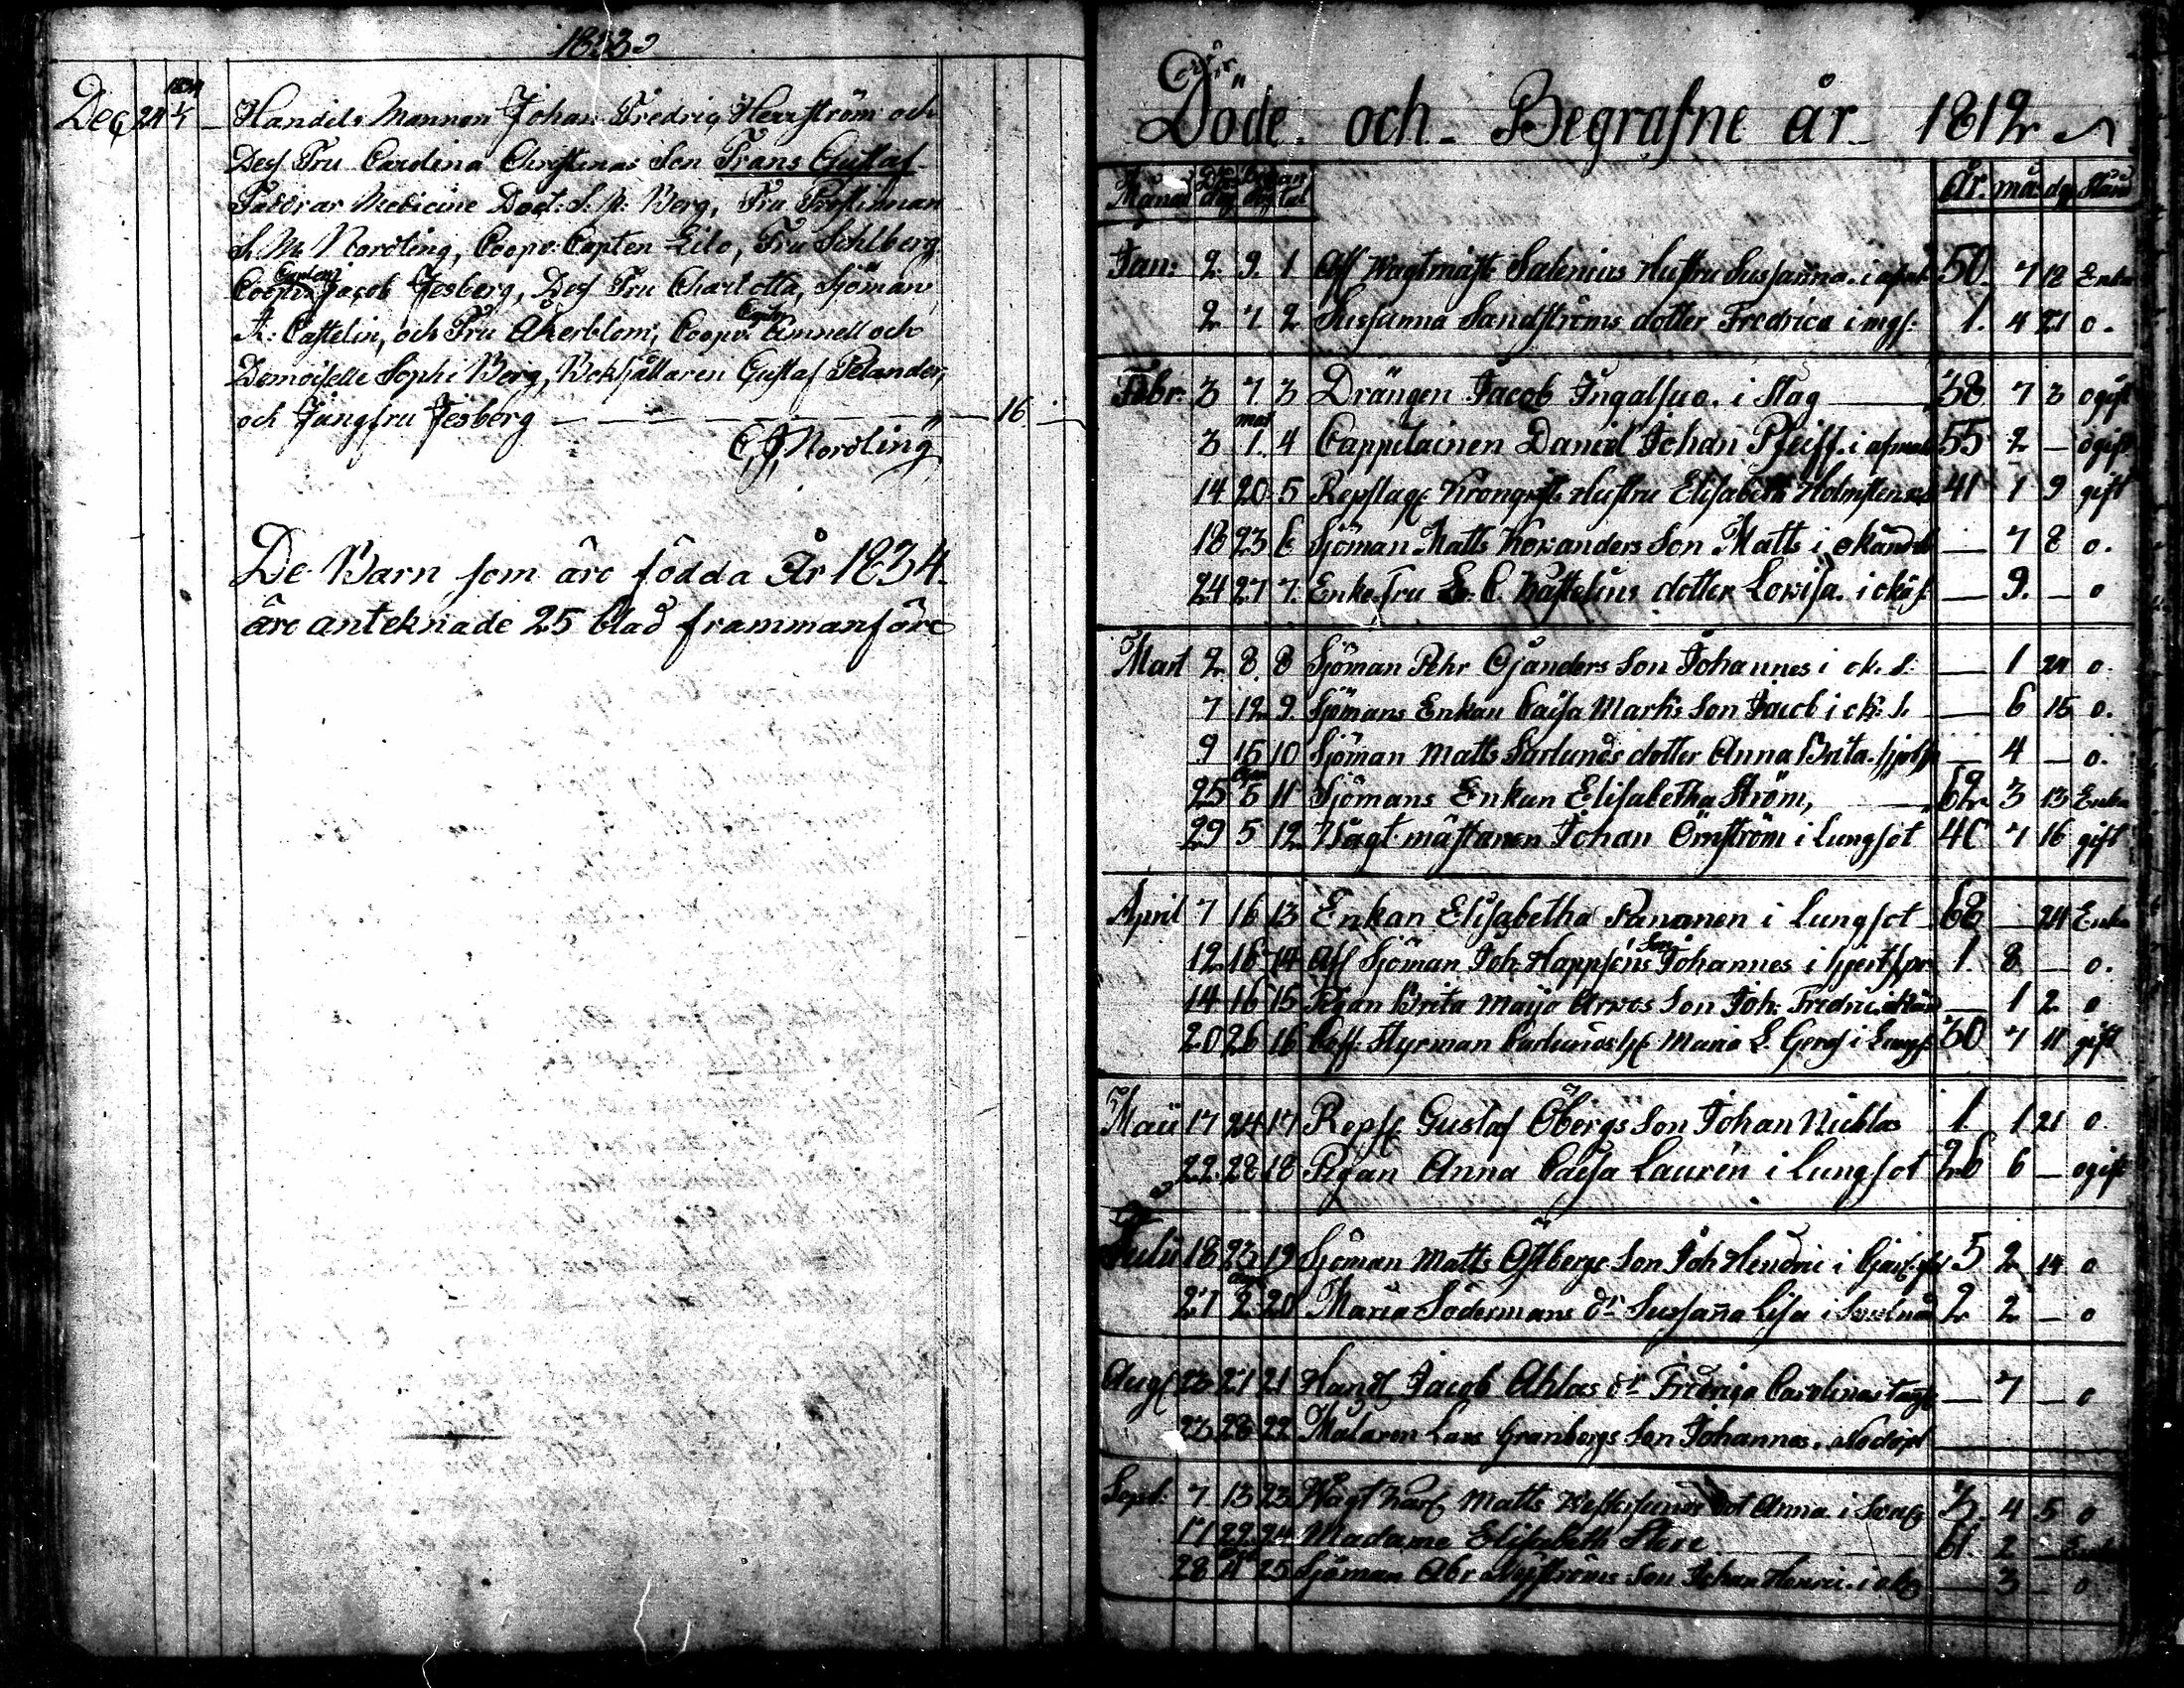 1833
Dec 24 1834 1/1 Handels Mannen Johan Fredric Herrström och
Dess Fru Carolina Christinas Son Frans Gustaf
Faddrar Medicine Doct: Berg, Fru Prostinnan
Nordling, Coopv: Capten Lilo, Fru Sohlberg
Coopv: Capten Jacob Jesberg, Dess Fru Charlotta, Sjöman
Castelin, och Fru Åkerblom, Coopv: Capten Amnell och
Demoiselle Sophi Berg, Bokhållaren Gustaf Pelander,
och Jungfru Jesberg 16
Nordling
De Barn som äro födda År 1834
äro anteknade 25 blad frammanföre
Döde och Begrafne år 1812
Månad År må: dg Stånd
Jan: 2 9 1 Aff Wagtmäst: Salenius Hustru Sussanna i 50 7 12 Enka
2 7 2 Sussanna Sandströms dotter Fredrica i 1 4 21 o.
Febr: 3 7 3 Drängen Jacob Ingalsuo. i Slag 38 7 3 ogift
3 1 4 Cappitainen Daniel Johan Pfeiff. i 55 2 — ogift
14 20 5 Repslag: Hustru Elisabeth 41 1 9 gift
18 23 6 Sjöman Matts Kovanders Son Matts i okänd — 7 8 o.
24 27 7 Enkefru Kastelins dotter Lovisa. i — 9. — o
Mart 2 8 8 Sjöman Pehr Gjanders Son Johannes i ok. s. — 1 24 o.
7 12 9 Sjömans Enkan Caisa Marks Son Jacob i ok: s. — 6 15 o.
9 15 10 Sjöman Matts Sarlunds dotter Anna Brita — 4 — o.
25 5 11 Sjömans Enkan Elisabetha Ström, 62 3 13 Enka
29 5 12 Wagt mästaren Johan Örnström i Lungsot 40 7 16 gift
April 7 16 13 Enkan Elisabetha Pananen i Lungsot 68 24 Enka
12 16 14 Aff Sjöman Joh: Happséns Son Johannes i 1. 8 — o.
14 16 15 Pigan Brita Maija Arvos Son Joh: Fredric — 1 2 o
20 26 16 Styrman Carlunds Maria i Lungs 30 7 11 gift
Maii 17 24 17 Reps: Gustaf Öbergs Son Johan Nicklas 1 1 21 o.
22 28 18 Pigan Anna Caisa Laurén i Lungsot 26 6 — ogift
Julii 18 23 19 Sjöman Matts Östbergs Son Joh Hendric i 5 2 14 o
27 2 20 Maria Södermans dr Sussanna Lisa i 2 2 — o
Aug 23 27 21 Handl Jacob Ahlas dr Fredrica Carolina — 7 — o
27 28 22 Målaren Lars Granbergs Son Johannes. Nödöpt
Sept: 7 13 23 Matts Westerlunds dot Anna i 3 4 5 o
17 22 24 Madame Elisabeth 61. 2 — Enka
28 4 25 Sjöman Abr Nyströms Son Johan Henric. — 3 — o